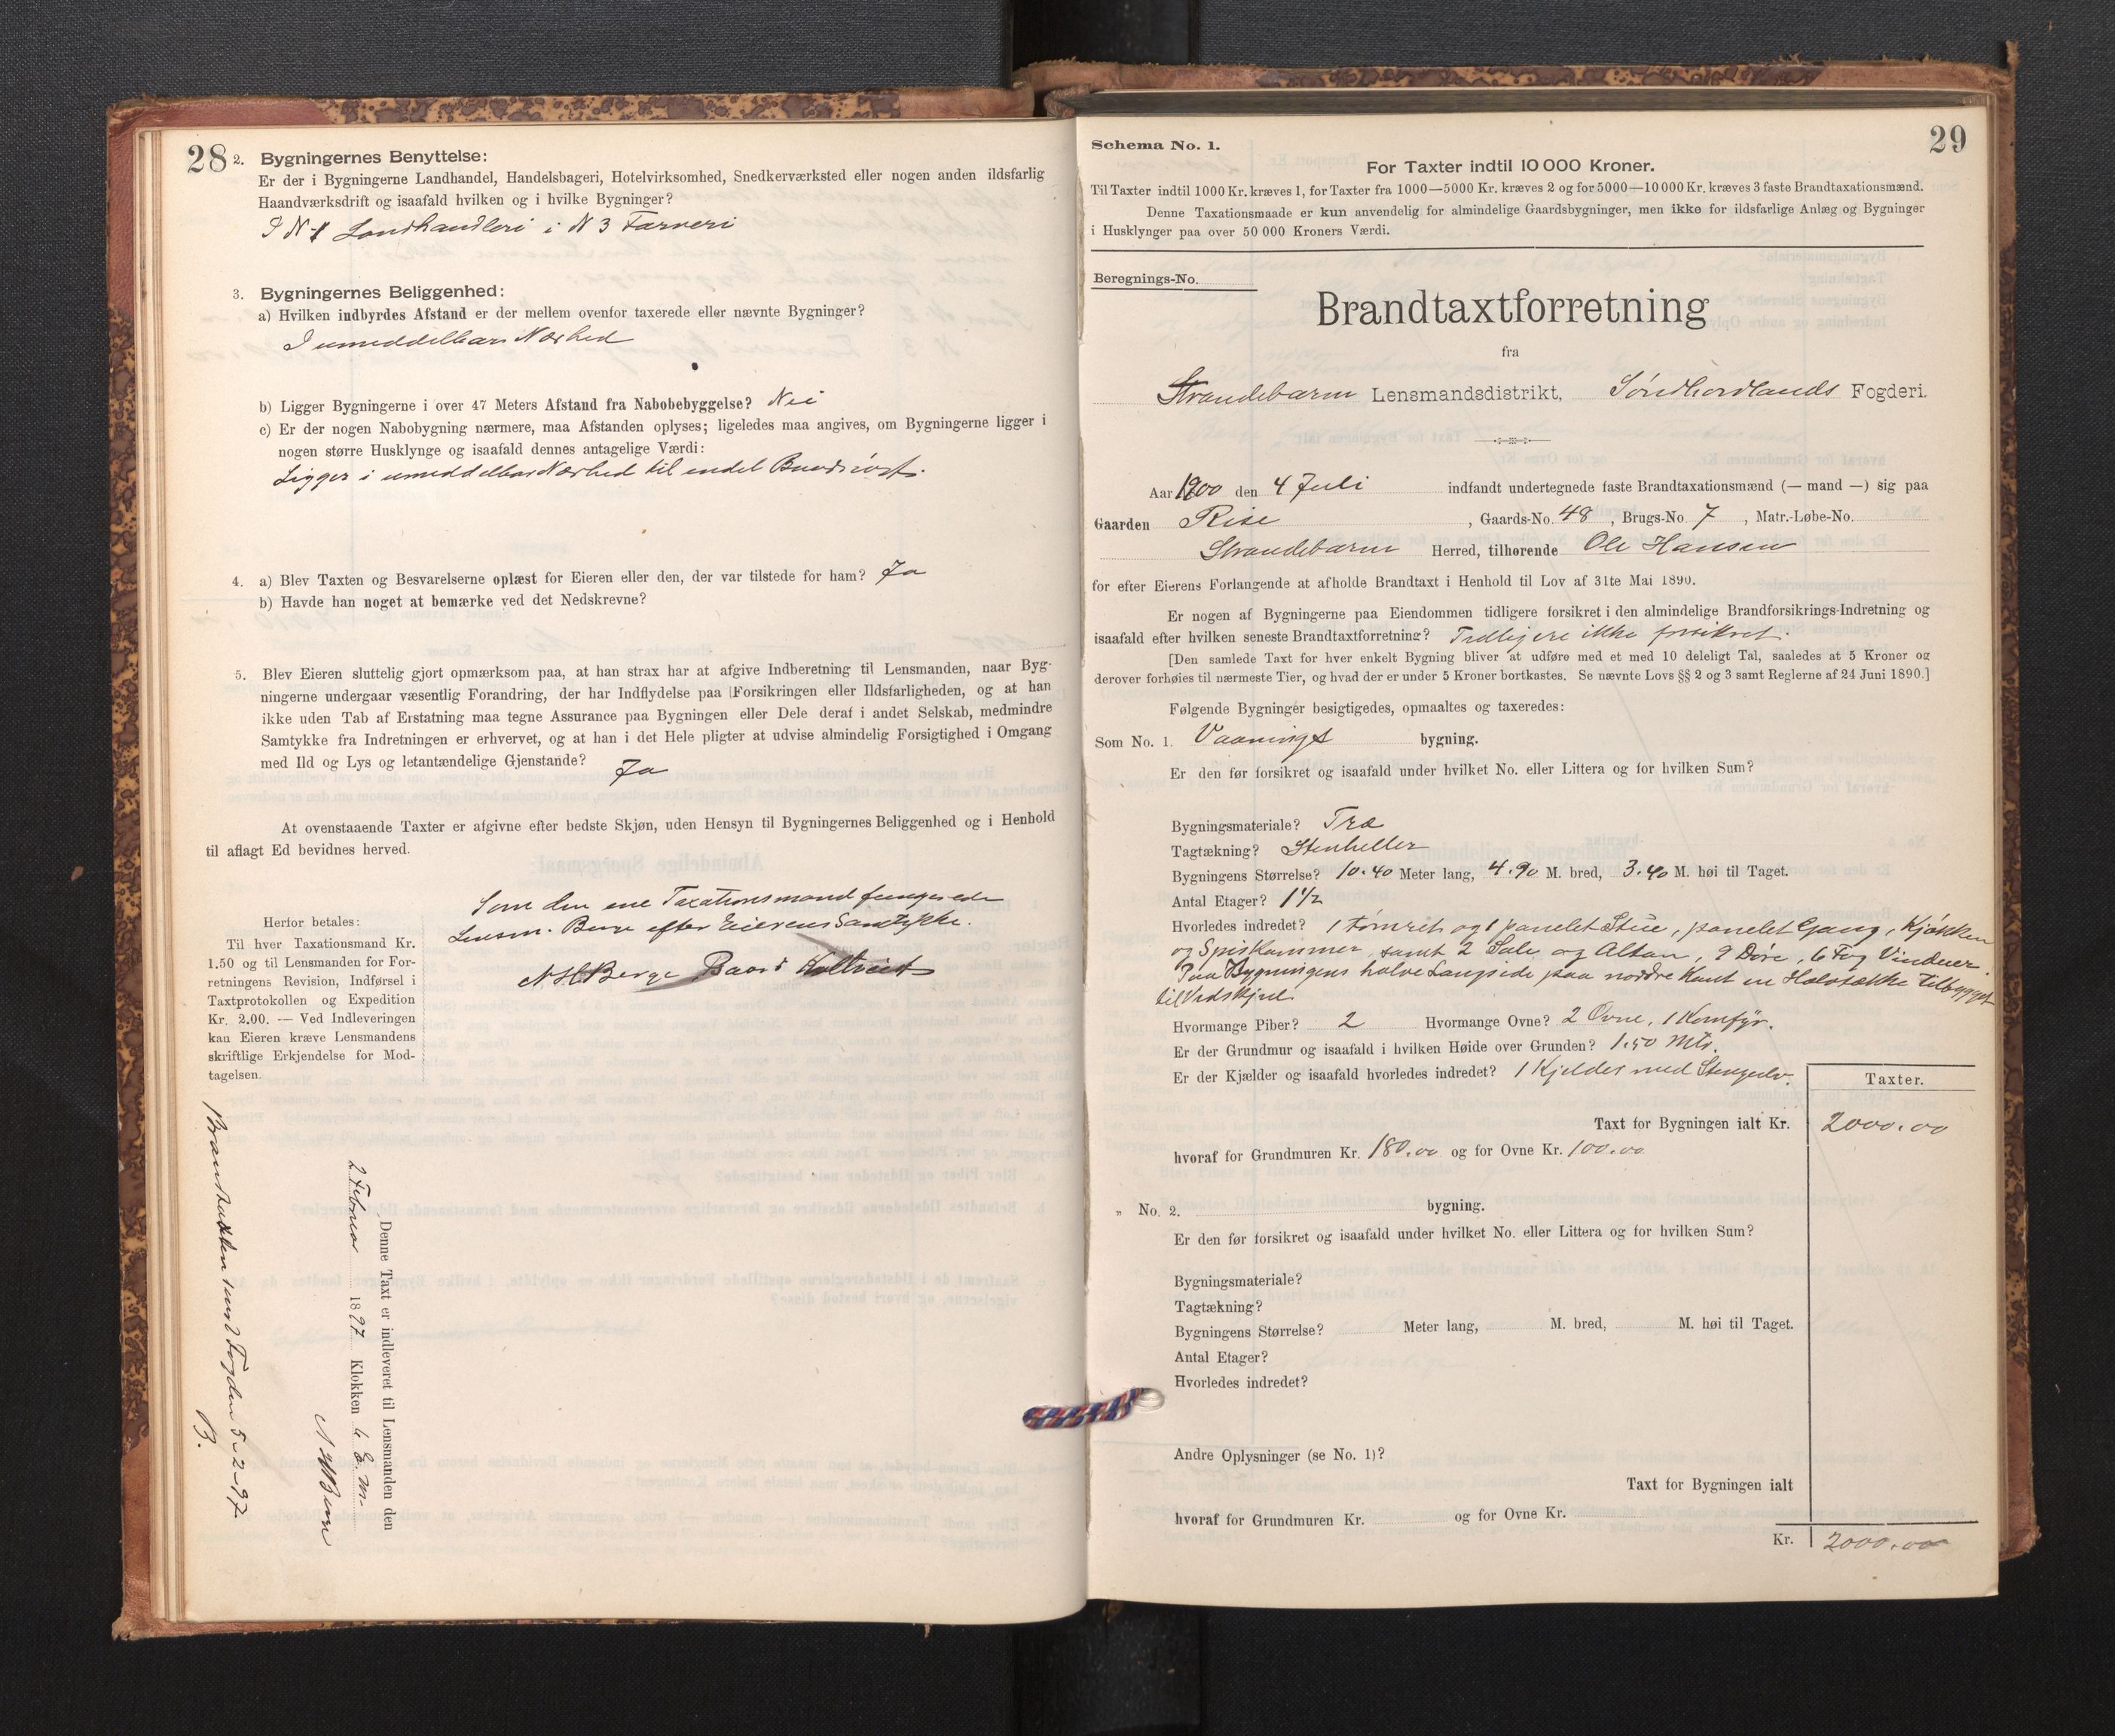 28
2. Bygningernes Benyttelse:
Er der i Bygningerne Landhandel, Handelsbageri, Hotelvirksomhed, Snedkerværksted eller nogen anden ildsfarlig
Haandværksdrift og isaafald hvilken og i hvilke Bygninger?
I N 1 Landhandleri i N 3 Farveri
3. Bygningernes Beliggenhed:
a) Hvilken indbyrdes Afstand er der mellem ovenfor taxerede eller nævnte Bygninger?
I umiddelbar Nærhed
b) Ligger Bygningerne i over 47 Meters Afstand fra Nabobebyggelse? Nei
c) Er der nogen Nabobygning nærmere, maa Afstanden oplyses; ligeledes maa angives, om Bygningerne ligger i
nogen større Husklynge og isaafald dennes antagelige Værdi:
Ligger i umiddelbar Nærhed til endel
4. a) Blev Taxten og Besvarelserne oplæst for Eieren eller den, der var tilstede for ham? Ja
b) Havde han noget at bemærke ved det Nedskrevne?
5. Blev Eieren sluttelig gjort opmærksom paa, at han strax har at afgive Indberetning til Lensmanden, naar Byg-
ningerne undergaar væsentlig Forandring, der har Indflydelse paa Forsikringen eller Ildsfarligheden, og at han
ikke uden Tab af Erstatning maa tegne Assurance paa Bygningen eller Dele deraf i andet Selskab, medmindre
Samtykke fra Indretningen er erhvervet, og at han i det Hele pligter at udvise almindelig Forsigtighed i Omgang
med Ild og Lys og letantændelige Gjenstande? Ja
At ovenstaaende Taxter er afgivne efter bedste Skjøn, uden Hensyn til Bygningernes Beliggenhed og i Henhold
til aflagt Ed bevidnes herved.
Som den ene Taxationsmand fungerede
Lensm. Berge efter Eierens Samtykke.
N H Berge Baard Holtveit
Herfor betales:
Til hver Taxationsmand Kr.
1.50 og til Lensmanden for For-
retningens Revision, Indførsel i
Taxtprotokollen og Expedition
Kr. 2.00. — Ved Indleveringen
kan Eieren kræve Lensmandens
skriftlige Erkjendelse for Mod-
tagelsen.
Denne Taxt er indleveret til Lensmanden den
2 Februar 1897 Klokken 4 E. M.
N H Berge
Brandtaxten sendt Fogden 5-2-97
B.
29
Schema No. 1.
For Taxter indtil 10 000 Kroner.
Til Taxter indtil 1000 Kr. kræves 1, for Taxter fra 1000—5000 Kr. kræves 2 og for 5000—10 000 Kr. kræves 3 faste Brandtaxationsmænd.
Denne Taxationsmaade er kun anvendelig for almindelige Gaardsbygninger, men ikke for ildsfarlige Anlæg og Bygninger
i Husklynger paa over 50 000 Kroners Værdi.
Beregnings-No.
Brandtaxtforretning
fra
Strandebarm Lensmandsdistrikt, Søndhordlands Fogderi.
Aar 1900 den 4 Juli indfandt undertegnede faste Brandtaxationsmænd (— mand —) sig paa
Gaarden Rise, Gaards-No. 48, Brugs-No 7, Matr.-Løbe-No.
Strandebarm Herred, tilhørende Ole Hansen
for efter Eierens Forlangende at afholde Brandtaxt i Henhold til Lov af 31te Mai 1890.
Er nogen af Bygningerne paa Eiendommen tidligere forsikret i den almindelige Brandforsikrings-Indretning og
isaafald efter hvilken seneste Brandtaxtforretning? Tidligere ikke forsikret.
[Den samlede Taxt for hver enkelt Bygning bliver at udføre med et med 10 deleligt Tal, saaledes at 5 Kroner og
derover forhøies til nærmeste Tier, og hvad der er under 5 Kroner bortkastes. Se nævnte Lovs §§ 2 og 3 samt Reglerne af 24 Juni 1890.]
Følgende Bygninger besigtigedes, opmaaltes og taxeredes:
Som No. 1. Vaanings bygning.
Er den før forsikret og isaafald under hvilket No. eller Littera og for hvilken Sum?
Bygningsmateriale? Træ
Tagtækning? Stenheller
Bygningens Størrelse? 10.40 Meter lang, 4.90 M. bred, 3.40 M. høi til Taget.
Antal Etager? 1½
Hvorledes indredet? 1 tømret og 1 panelet Stue, panelet Gang, Kjøkken
og Spiskammer, samt 2 Sale og Altan, 9 Døre, 6 Fag Vinduer.
Paa Bygningens halve Langside paa nordre Kant en Halvtække tilbygget
til Vedskjul.
Hvormange Piber? 2 Hvormange Ovne? 2 Ovne, 1 Komfyr.
Er der Grundmur og isaafald i hvilken Høide over Grunden? 1.50 Mtr.
Er der Kjælder og isaafald hvorledes indredet? 1 Kjelder med Stengulv.
Taxter.
Taxt for Bygningen ialt Kr. 2000.00
hvoraf for Grundmuren Kr. 180.00 og for Ovne Kr. 100.00
„ No. 2. bygning.
Er den før forsikret og isaafald under hvilket No. eller Littera og for hvilken Sum?
Bygningsmateriale?
Tagtækning?
Bygningens Størrelse? Meter lang, M. bred, M. høi til Taget.
Antal Etager?
Hvorledes indredet?
Andre Oplysninger (se No. 1)?
Taxt for Bygningen ialt
hvoraf for Grundmuren Kr. og for Ovne Kr.
Kr. 2000.00